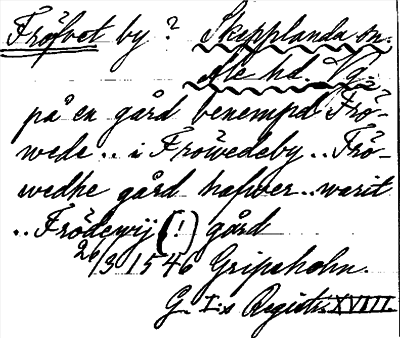 Frövet by? Skepplanda sn.
Ale hd. Vg.
på en gård benempd Frö-
wede .. i Fröwedeby .. Frö-
wedhe gård hafwer .. warit
.. Frödewij (!) gård
26/3 1546 Gripsholm.
G. I:s Registr. XVIII.